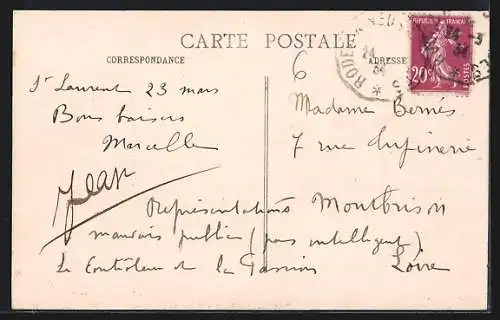 CARTE POSTALE
CORRESPONDANCE
ADRESSE
REPUBLIQUE FRANCAISE
20c
POSTES
RODE
24
34
24 3
34
6
St Laurent 23 mars
Bons baisers
Marcelle
Jean
Madame Bernés
7 rue
Montbrison
Loire
Représentations
mauvais public (pas intelligent)
Le Contrôleur de la